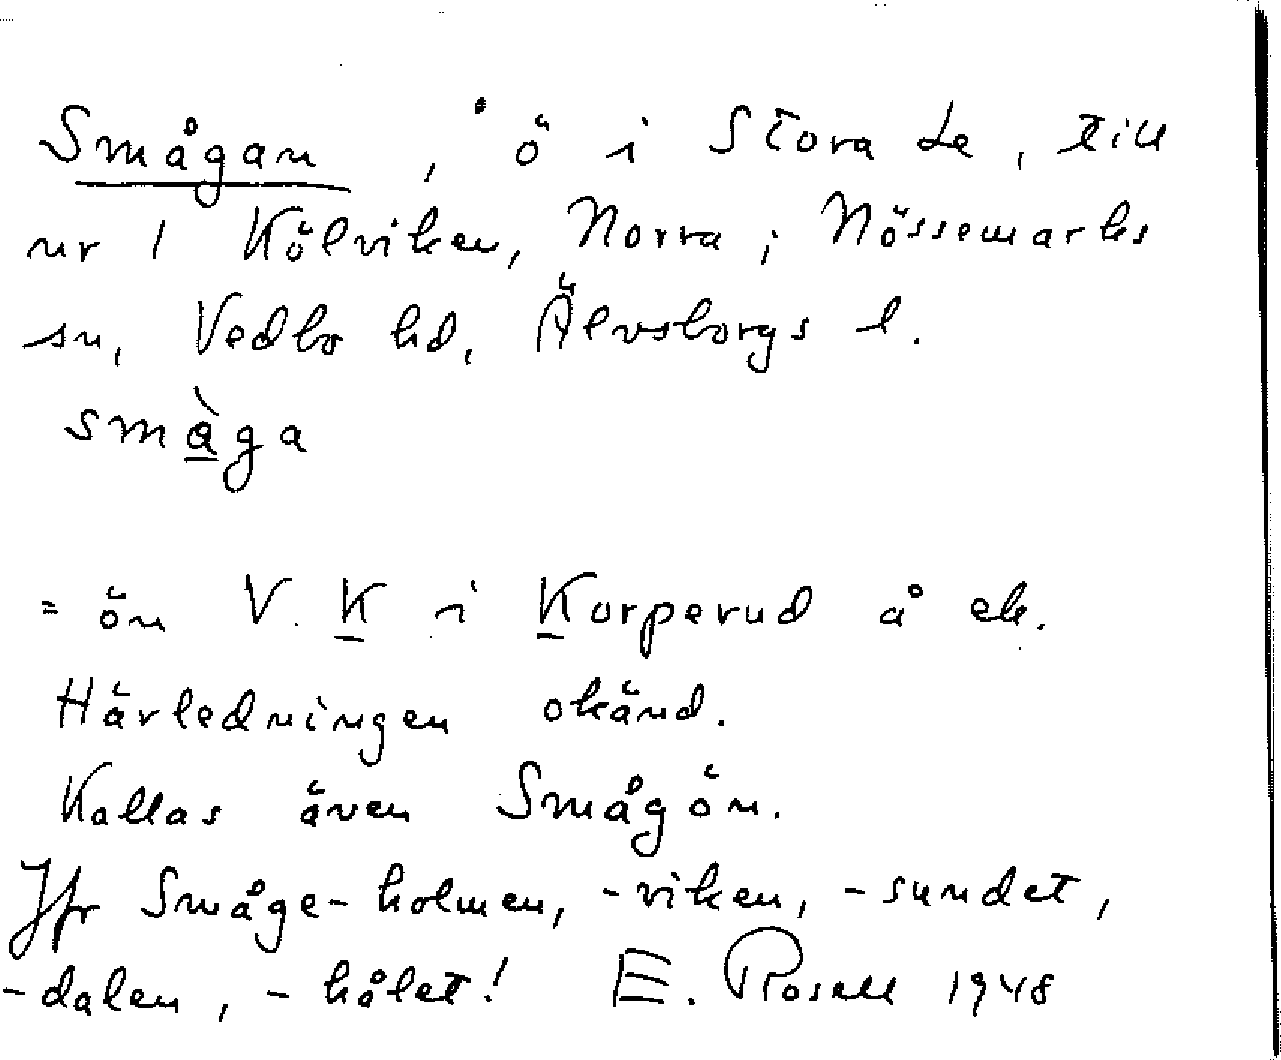 Smågan, ö i Stora Le, till
nr 1 Kölviken, Norra, i Nössemarks
sn, Vedbo hd, Älvsborgs l.
smàga
= ön V. K i Korperud å ek.
Härledningen okänd.
Kallas även Smågön.
Jfr Småge-holmen, -viken, -sundet,
-dalen, -hålet! E. Rosell 1948